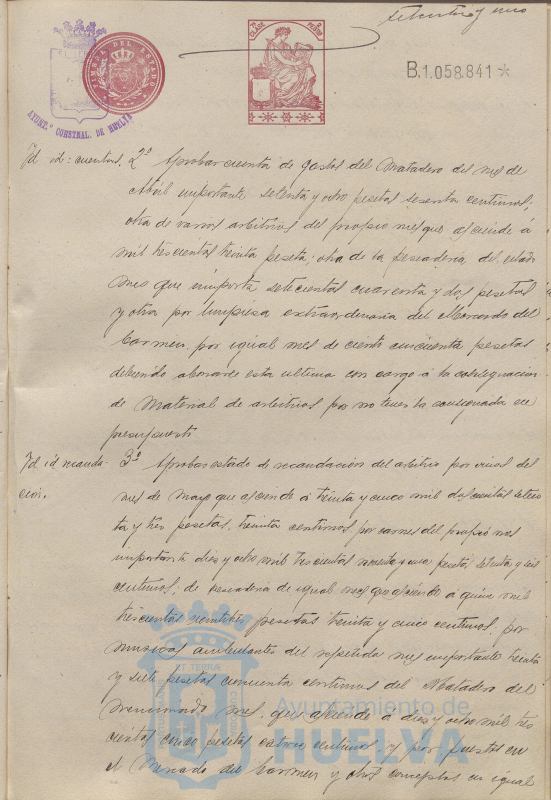 setenta y uno
TIMBRE DEL ESTADO
7ª CLASE
AYUNT.º CONSTNAL. DE HUELVA
B.1.058.841 *
Id id: cuentas. 2º Aprobar cuenta de gastos del Matadero del mes de
Abril importante setenta y ocho pesetas sesenta centimos;
otra de varios arbitrios del propio mes que asciende á
mil trescientas treinta peseta; otra de la pescaderia del citado
mes que importa setecientas cuarenta y dos pesetas
y otra por limpieza extraordinaria del Mercado del
Carmen, por igual mes de ciento cincuenta pesetas
debiendo abonarse esta ultima con cargo á la consignacion
de Material de arbitrios por no tener la consignada en
presupuesto
Id id recauda- 3º Aprobar estado de recaudacion del arbitrio por vinos del
cion. mes de Mayo que asciende á treinta y cinco mil doscientas seten
ta y tres pesetas, treinta centimos, por carnes del propio mes
importante dies y ocho mil trescientas noventa y una pesetas setenta y seis
centimos; de pescaderia de igual mes que asciende a quince mil
trescientas veintitres pesetas treinta y cinco centimos, por
musicos ambulantes del repetido mes importante treinta
y siete pesetas cincuenta centimos del Matadero del
mencionado mes, que asciende á dies y ocho mil tres
cientas cinco pesetas catorce centimos, y por puestos en
el Mercado del Carmen y otros conceptos en igual
Ayuntamiento de
HUELVA